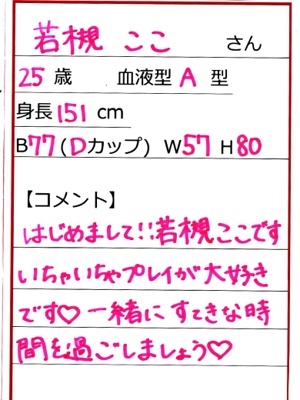 若槻 ここ さん
25歳 血液型 A 型
身長151cm
B77(Dカップ) W57 H80
【コメント】
はじめまして!!若槻ここです
いちゃいちゃプレイが大好き
です♡一緒にすてきな時
間を過ごしましょう♡